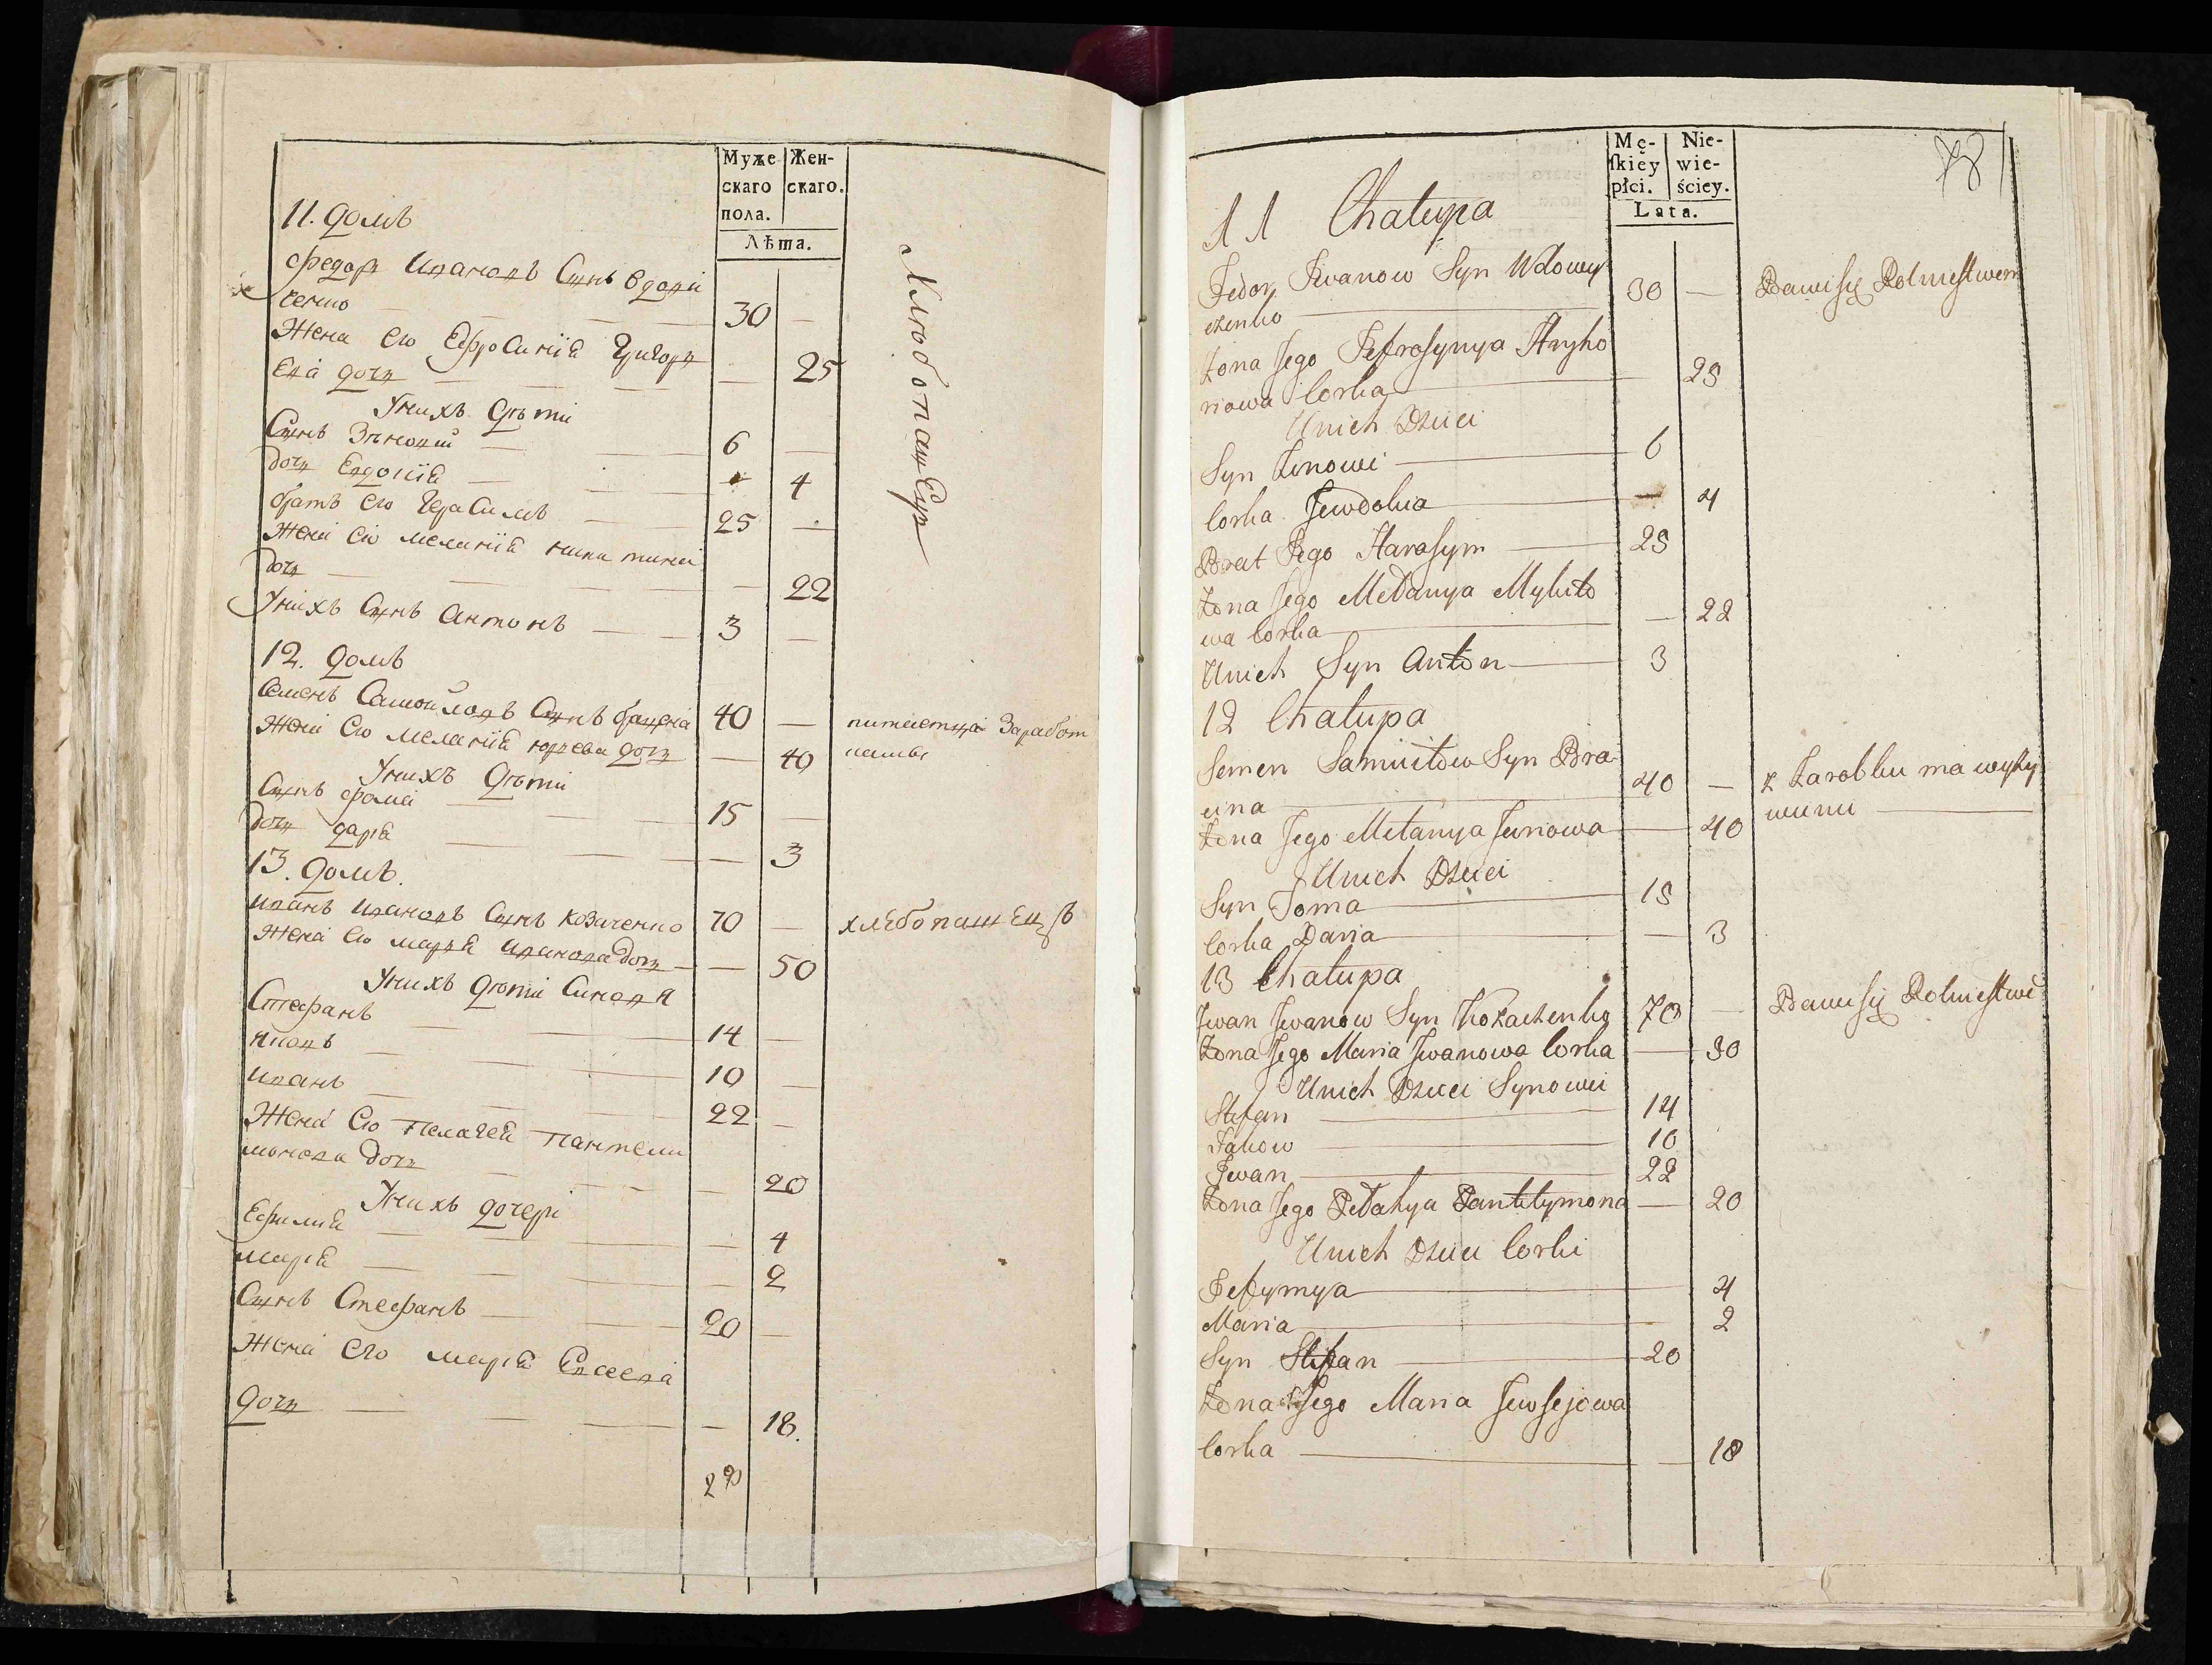 Муже
скаго
пола.
Жен-
скаго.
Лѣта.
11. домъ
Федоръ Ивановъ Сынъ Вдови
ченко — 30 —
Жена его Ефросинія Григорь
ева дочь — — 25
У нихъ дѣти
Сынъ Зѣновій — 6 —
дочь Евдокія — — 4
братъ его Герасимъ — 25 —
Жена его Меланія Никитина
дочь — — 22
У нихъ Сынъ Антонъ — 3 —
Хлебопашецъ
12. домъ
Семенъ Самойловъ Сынъ 40 — питается Заработ
Жена его Меланія юрьева дочь — 40 ками
У нихъ дѣти
Сынъ Фома — 15 —
дочь дарія — — 3
13. домъ.
Иванъ Ивановъ Сынъ Козаченко 70 — хлебопашецъ
Жена его марія Иванова дочь — — 50
У нихъ дѣти Синовя
Стефанъ — 14 —
Яковъ — 10 —
Иванъ — 22 —
Жена его Пелагея Пантели
монова дочь — — 20
У нихъ дочери
Ефимія — — 4
марія — — 2
Сынъ Стефанъ — 20 —
Жена его марія Евсеева
дочь — — 18.
Mę-
ſkiéy
płci.
Nie-
wie-
ściey.
Lata.
78
11 Chałupa
Fedor Iwanow Syn Wdowy
czenko — 30 — Bawi się Rolnictwem
Żona Jego Jefrosynya Hryho
riowa Corka — 25
Unich Dzieci
Syn Zenowi — 6
Corka Jewdokia — 4
Brat Jego Harasym — 25
Żona Jego Mełanya Mykito
wa Corka — 22
Unich Syn Anton — 3
12 Chałupa
Semen Samuiłow Syn Bra
eina — 40 — z Zarobku ma wyży
Żona Jego Mełanya Juriowa — 40 wienie —
Unich Dzieci
Syn Foma — 15
Corka Daria — 3
13 Chałupa
Iwan Iwanow Syn Kozaczenko 70 — Bawi się Rolnictwe
Żona Jego Maria Iwanowa Corka — 50
Unich Dzieci Synowei
Stefan — 14
Jakow — 10
Iwan — 22
Żona Jego Pełahya Pantełymona — 20
Unich Dzieci Corki
Jefymya — 4
Maria — 2
Syn Stefan — 20
Żona Jego Maria Jewsejowa
Corka — 18